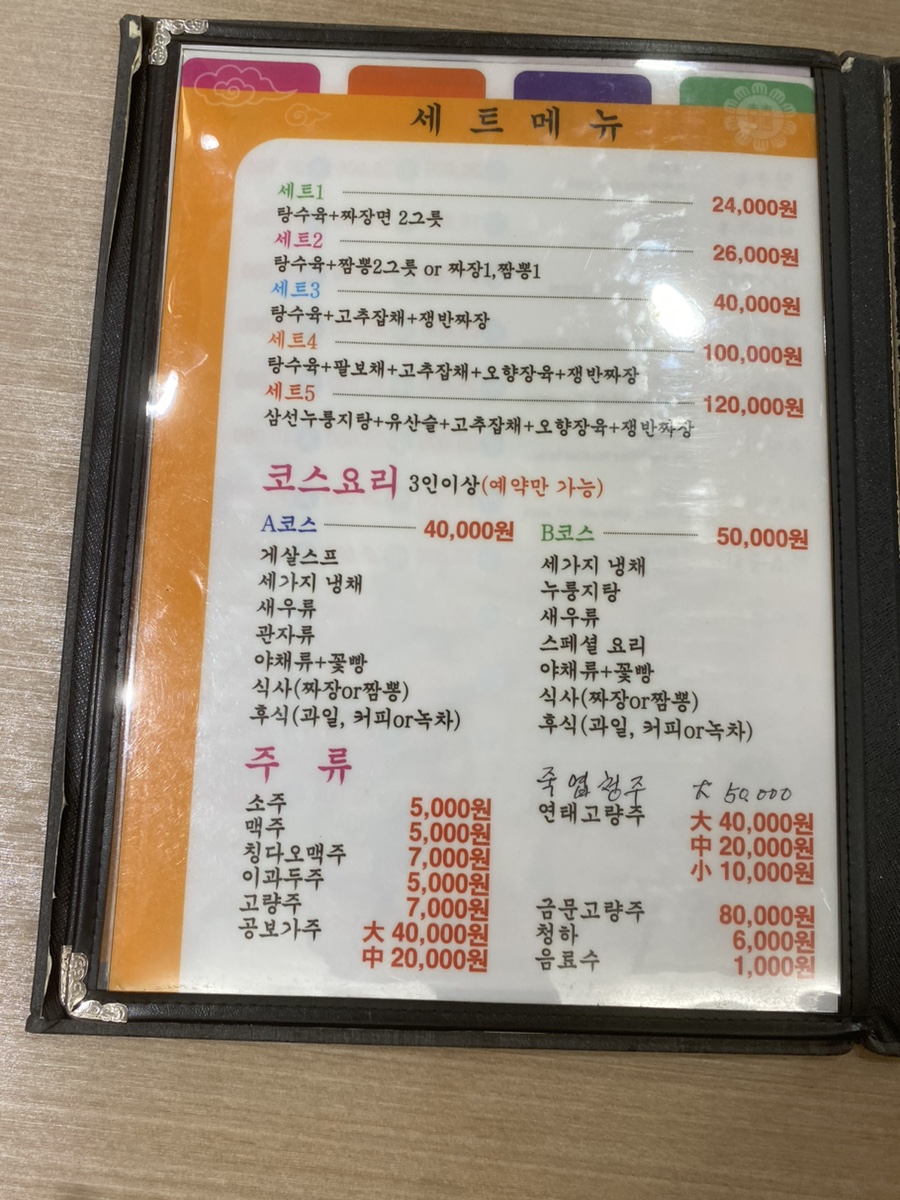 세트메뉴
세트1 24,000원
탕수육+짜장면 2그릇
세트2 26,000원
탕수육+짬뽕2그릇 or 짜장1,짬뽕1
세트3 40,000원
탕수육+고추잡채+쟁반짜장
세트4 100,000원
탕수육+팔보채+고추잡채+오향장육+쟁반짜장
세트5 120,000원
삼선누룽지탕+유산슬+고추잡채+오향장육+쟁반짜장
코스요리 3인이상(예약만 가능)
A코스 40,000원
게살스프
세가지 냉채
새우류
관자류
야채류+꽃빵
식사(짜장or짬뽕)
후식(과일, 커피or녹차)
B코스 50,000원
세가지 냉채
누룽지탕
새우류
스페셜 요리
야채류+꽃빵
식사(짜장or짬뽕)
후식(과일, 커피or녹차)
주 류
소주 5,000원
맥주 5,000원
칭다오맥주 7,000원
이과두주 5,000원
고량주 7,000원
공보가주 大 40,000원
中 20,000원
죽엽청주 大 50,000
연태고량주 大 40,000원
中 20,000원
小 10,000원
금문고량주 80,000원
청하 6,000원
음료수 1,000원